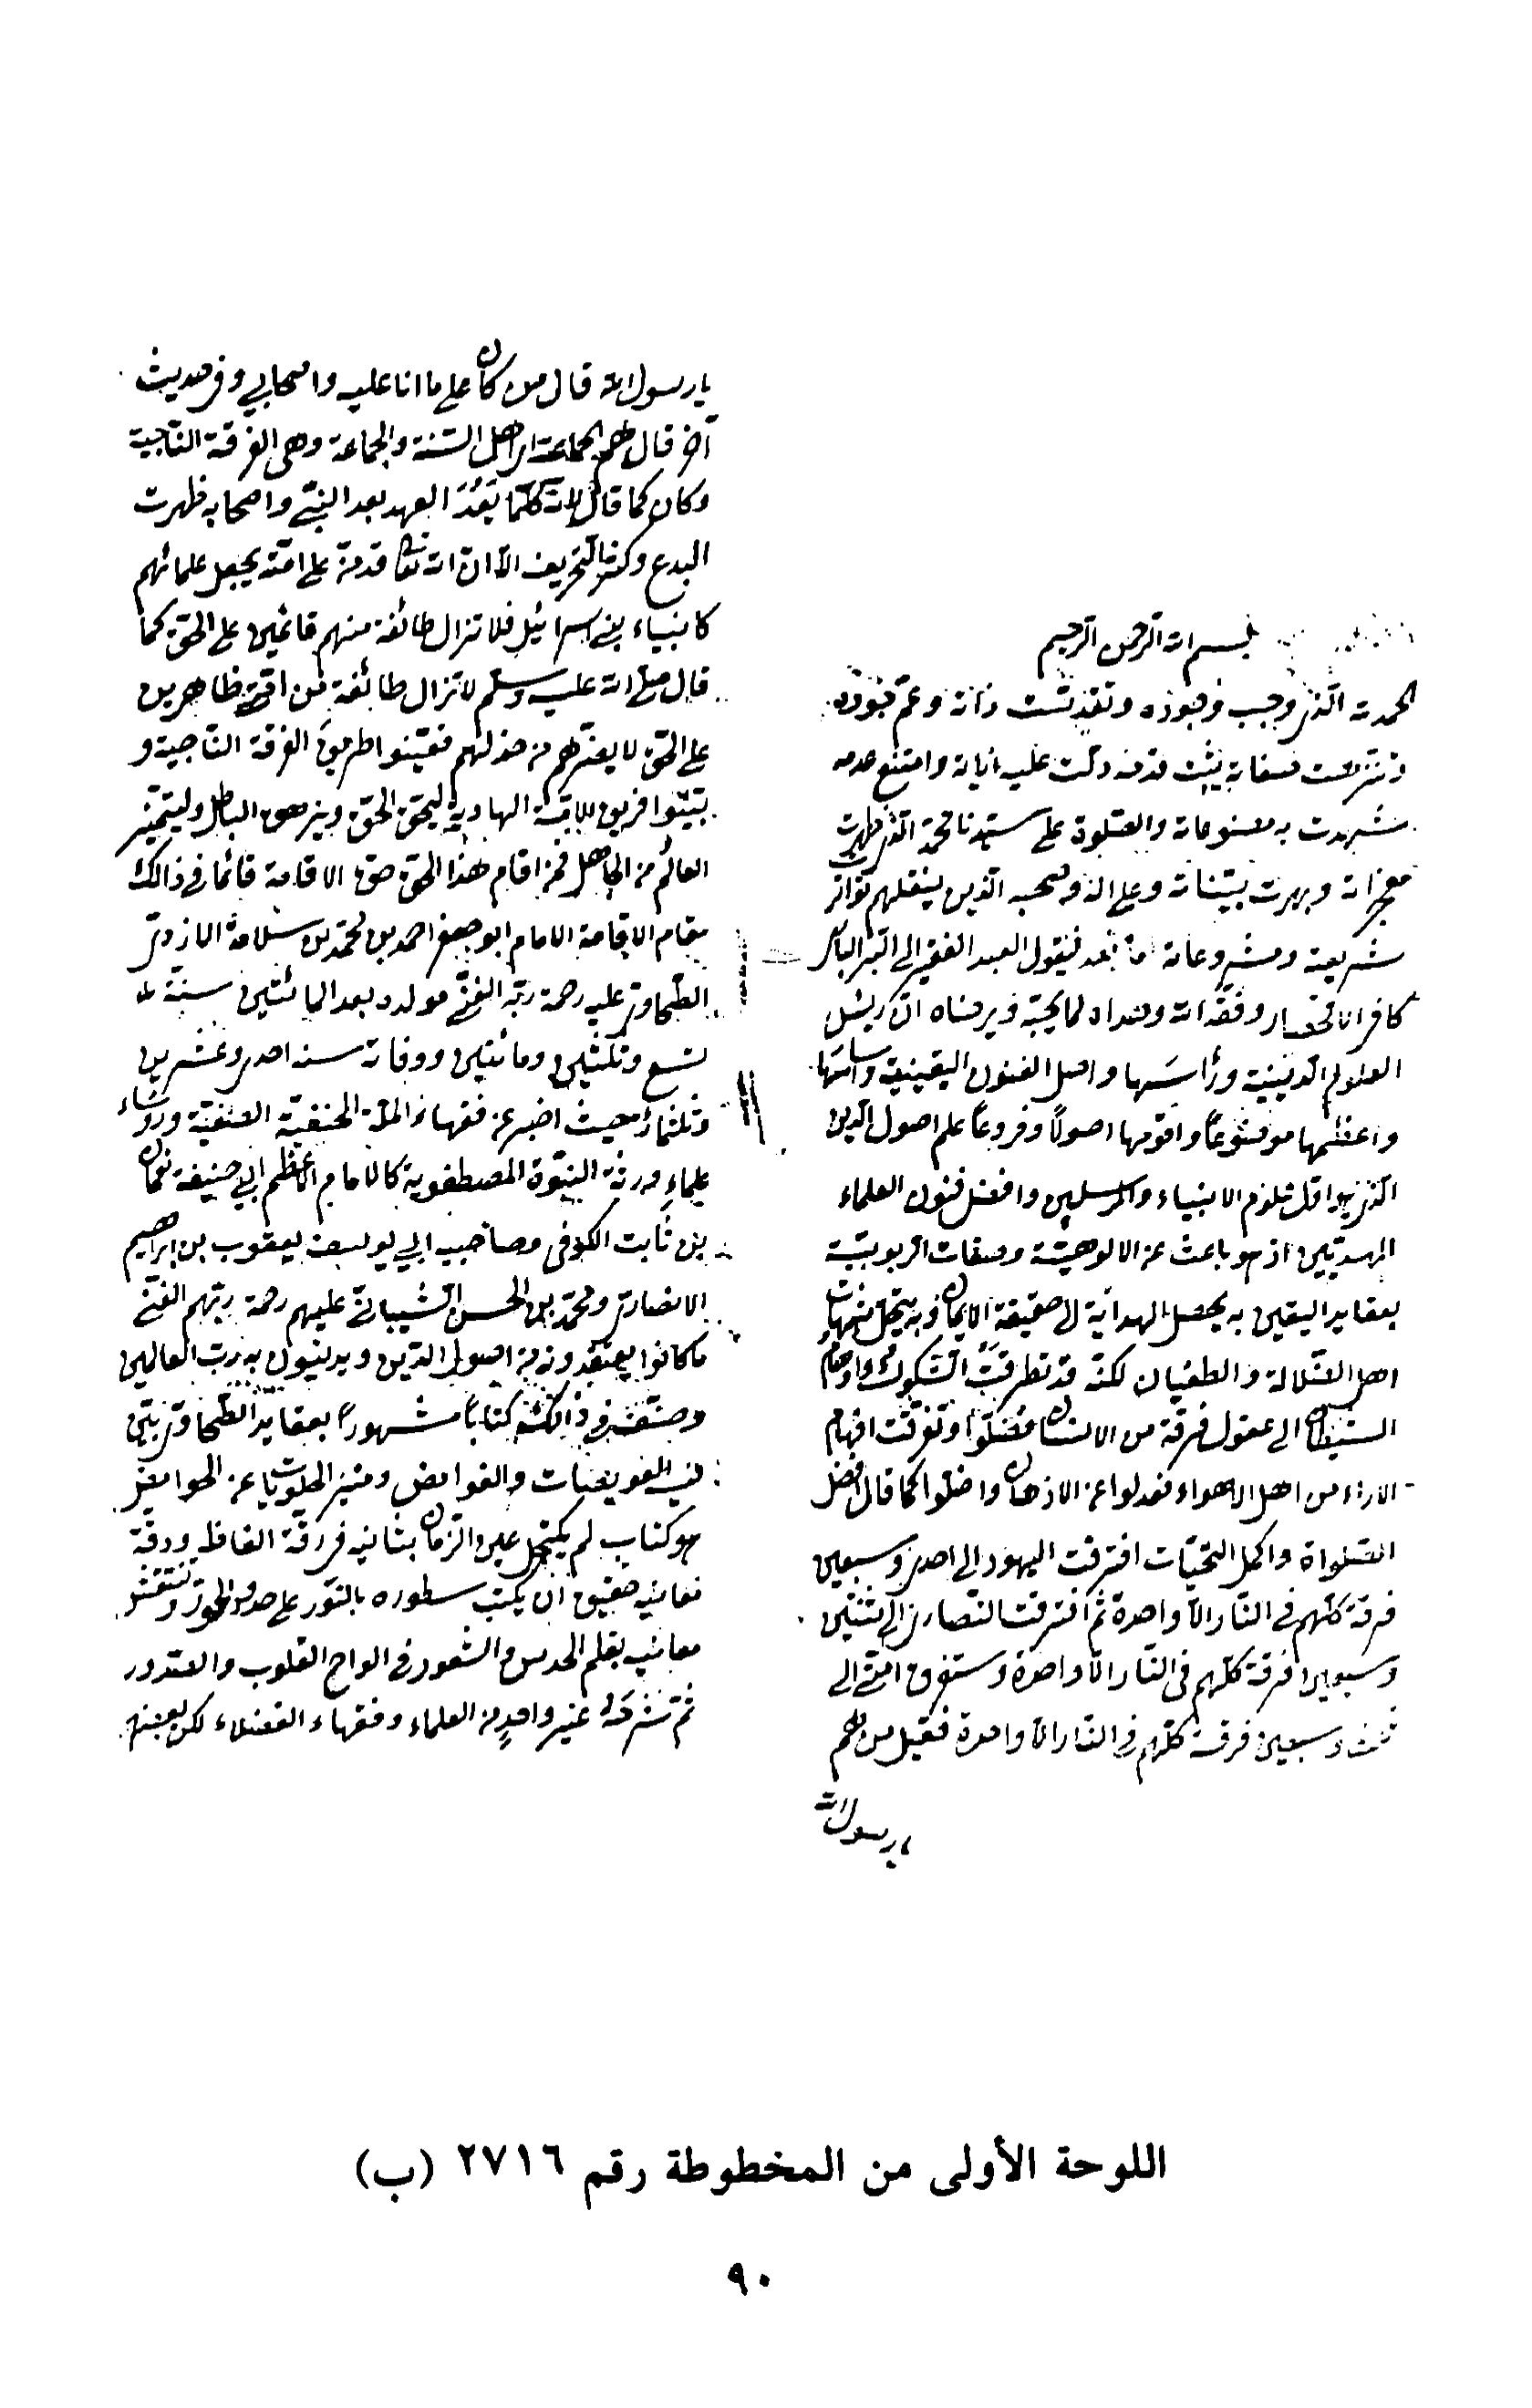 بسم الله الرحمن الرحيم
الحمد لله الذى وجب وجوده وتقدست ذاته وعم جوده
وتنزهت صفاته يثبت قدمه دلت عليه اياته وامتنع عدمه
شهدت به مصنوعاته والصلوة على سيدنا محمد الذى ظهرت
معجزاته وبهرت بيناته وعلى اله وصحبه الذين ينقلهم تواتر
شريعته ومشروعاته اما بعد فيقول العبد الفقير الى البر البارى
كافى الاقحصارى وفقه الله وهداه لما يحبه ويرضاه ان رئيس
العلوم الدينية ورأسها واصل الفنون اليقينية واساسها
واعظمها موضوعاً واقومها اصولاً وفروعاً علم اصول الدين
الذى هو اول علوم الانبياء والمرسلين وافضل فنون العلماء
المهديين اذ هو باحث عن الالوهية وصفات الربوبية
بعقايد اليقين به يحصل الهداية الى حقيقة الايمان وبه يتجلى شبهات
اهل الضلالة والطغيان لكنه قد تطرقت الشكوك واوهام
الشيطان الى عقول فرقة من الانسان فضلوا وتفرقت افهام
الاراء من اهل الاهواء فعدلوا عن الاذهان واضلوا كما قال افضل
الصلواة واكمل التحيات افترقت اليهود الى احدى وسبعين
فرقة كلهم فى النار الا واحدة ثم افترقت النصارى الى ثنتين
وسبعين فرقة كلهم فى النار الا واحدة وستفرق امتى الى
ثلث وسبعين فرقة كلهم فى النار الا واحدة فقيل من هم
يا رسول الله
يا رسول الله قال من كان على ما انا عليه واصحابى وفى حديث
آخر قال هم الجماعة اى اهل السنة والجماعة وهى الفرقة الناجية
وكان كما قال لانه كلما بَعُدَ العهد بعد النبى واصحابه ظهرت
البدع وكثر التحريف الا ان الله تعالى قد من على امته بجعل علمائهم
كانبياء بنى اسرائيل فلا تزال طائفة منهم قائمين على الحق كما
قال صلى الله عليه وسلم لا تزال طائفة من امتى ظاهرين
على الحق لا يضرهم من خذلهم فعينوا طريق الفرقة الناجية و
بينوا فريق الهادية ليحق الحق ويزهق الباطل وليتميز
العالم من الجاهل فمن اقام هذا الحق حق الاقامة قائما فى ذالك
مقام الاقامة الامام ابو جعفر احمد بن محمد بن سلامة الازدى
الطحاوى عليه رحمة ربه الغنى مولده بعد المائتين سنة
تسع وثلثين ومائتين ووفاته سنة احدى وعشرين
وثلثمائة حيث اخبر عن فقهاء الملة الحنفية الحنيفية ورؤساء
علماء ورثة النبوة المصطفوية كالامام الاعظم ابى حنيفة نعمان
بن ثابت الكوفى وصاحبيه ابى يوسف يعقوب بن ابراهيم
الانصارى ومحمد بن الحسن الشيبانى عليهم رحمة ربهم الغنى
ما كانوا يعتقدونه من اصول الدين ويدينون به رب العالمين
وصنف فى ذالك كتاباً مشهوراً بعقايد الطحاوى بيّن
فيه العويصات والغوامض وميز الحلويات عن الحوامض
هو كتاب لم يكتحل عين الزمان بثانيه فى رقة الفاظه ودقة
معانيه حقيق ان يكتب سطوره بالنور على خدود الحور وتنتقش
معانيه بقلم الحدس والشعور فى الواح القلوب والصدور
ثم شرحه غير واحدٍ من العلماء وفقهاء الفضلاء لكن بعضهم
اللوحة الأولى من المخطوطة رقم ٢٧١٦ (ب)
٩٠